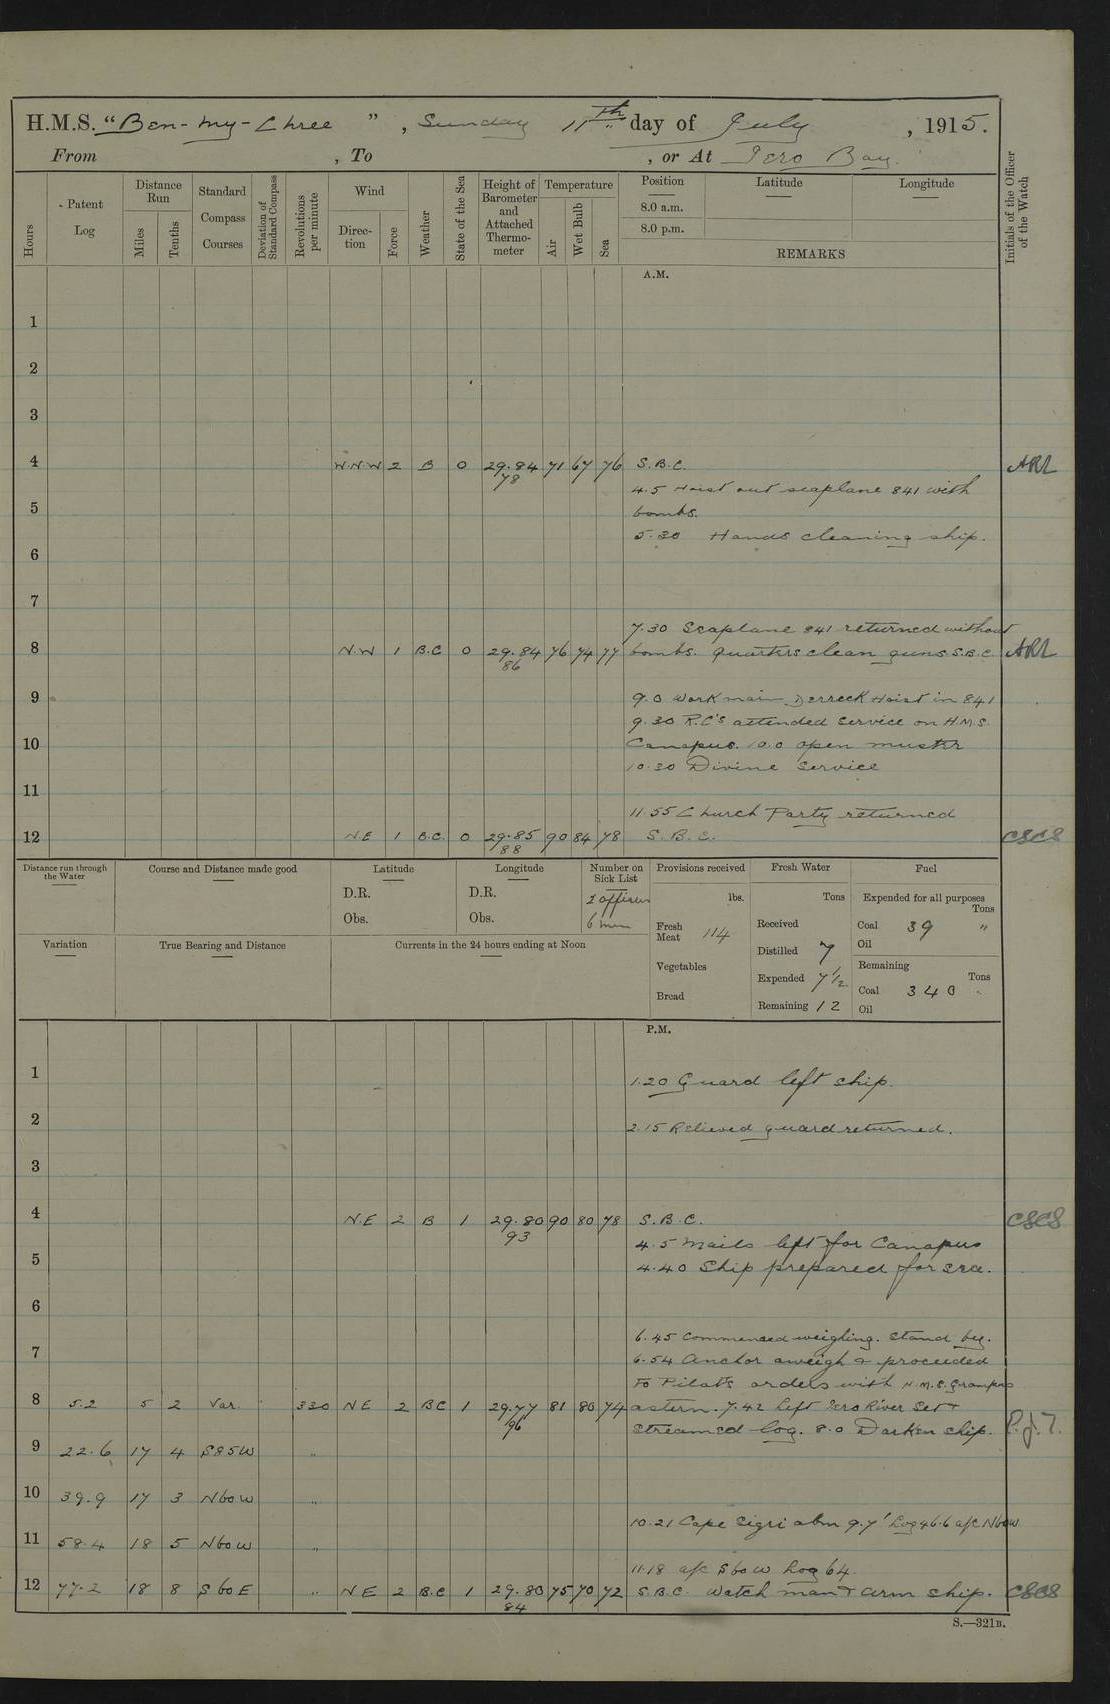 H.M.S. "Ben-my-Chree", Sunday 11th day of July, 1915.
From , To , or At Iero Bay.
Hours
Patent Log
Distance Run
Miles
Tenths
Standard Compass Courses
Deviation of Standard Compass
Revolutions per minute
Wind
Direction
Force
Weather
State of the Sea
Height of Barometer and Attached Thermometer
Temperature
Air
Wet Bulb
Sea
Position
8.0 a.m.
8.0 p.m.
Latitude
Longitude
REMARKS
Initials of the Officer of the Watch
A.M.
1
2
3
4 W.N.W 2 B 0 29.84 71 67 76 S.B.C. ARL
78
4.5 Hoist out seaplane 841 with
5 bombs.
5.30 Hands cleaning ship.
6
7
7.30 Seaplane 841 returned without
8 N.W 1 B.C 0 29.84 76 74 77 bombs. Quarters clean guns S.B.C ARL
86
9 9.0 Work main Derreck Hoist in 841
9.30 R.C's attended service on H.M.S.
10 Canopus. 10.0 open muster
10.30 Divine Service
11
11.55 Church Party returned
12 N.E 1 B.C. 0 29.85 90 84 78 S.B.C. CSCS
88
Distance run through the Water
Course and Distance made good
Latitude
D.R.
Obs.
Longitude
D.R.
Obs.
Number on Sick List
2 officers
6 men
Provisions received
lbs.
Fresh Meat 114
Vegetables
Bread
Fresh Water
Tons
Received
Distilled 7
Expended 7 1/2
Remaining 12
Fuel
Expended for all purposes
Tons
Coal 39 "
Oil
Remaining
Tons
Coal 340
Oil
Variation
True Bearing and Distance
Currents in the 24 hours ending at Noon
P.M.
1 1.20 Guard left ship.
2 2.15 Relieved guard returned.
3
4 N.E 2 B 1 29.80 90 80 78 S.B.C. CSCS
93
4.5 Mails left for Canopus
5 4.40 Ship prepared for sea.
6
6.45 Commenced weighing. Stand by.
7 6.54 Anchor aweigh & proceeded
to Pilots orders with H.M.S. Grampus
8 5.2 5 2 Var. 330 NE 2 BC 1 29.77 81 80 74 astern. 7.42 Left Iero River Set &
96
streamed log. 8.0 Darken ship. P.J.T.
9 22.6 17 4 S85W "
10 39.9 17 3 N60W "
10.21 Cape Sigri abm 9.7' Log 46.6 a/c N60W
11 58.4 18 5 N60W "
11.18 a/c S60W Log 64.
12 77.2 18 8 S60E " NE 2 B.C 1 29.80 75 70 72 S.B.C. Watch man & arm ship. CSCS
84
S.—321B.